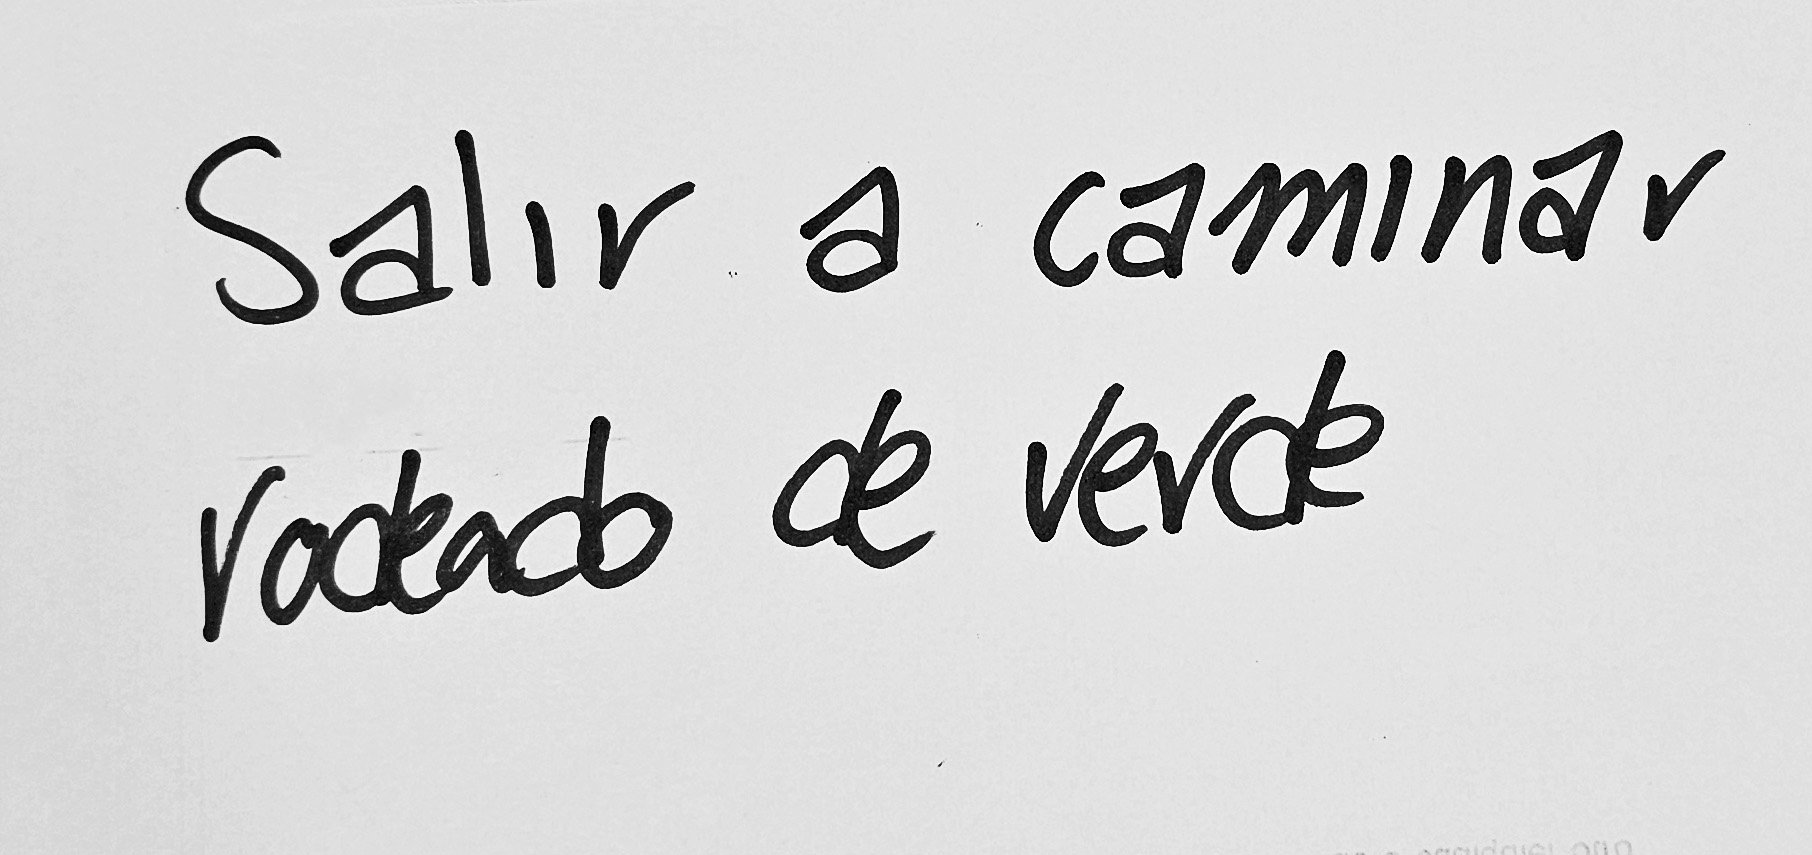 Salir a caminar
rodeado de verde